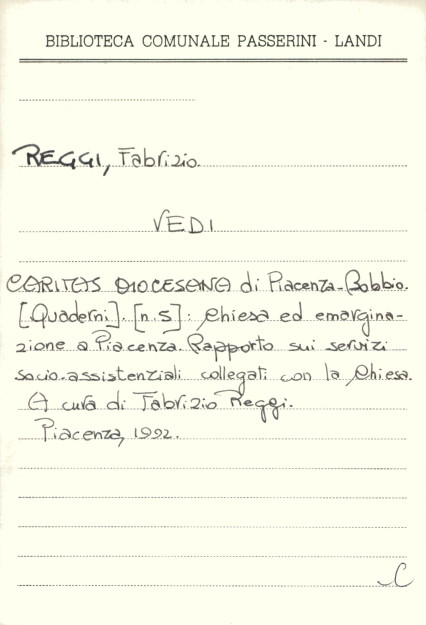 BIBLIOTECA COMUNALE PASSERINI - LANDI
REGGI, Fabrizio.
VEDI
CARITAS DIOCESANA di Piacenza-Bobbio.
[Quaderni]. [n.5]: Chiesa ed emargina-
zione a Piacenza. Rapporto sui servizi
socio-assistenziali collegati con la Chiesa.
A cura di Fabrizio Reggi.
Piacenza, 1992.
C